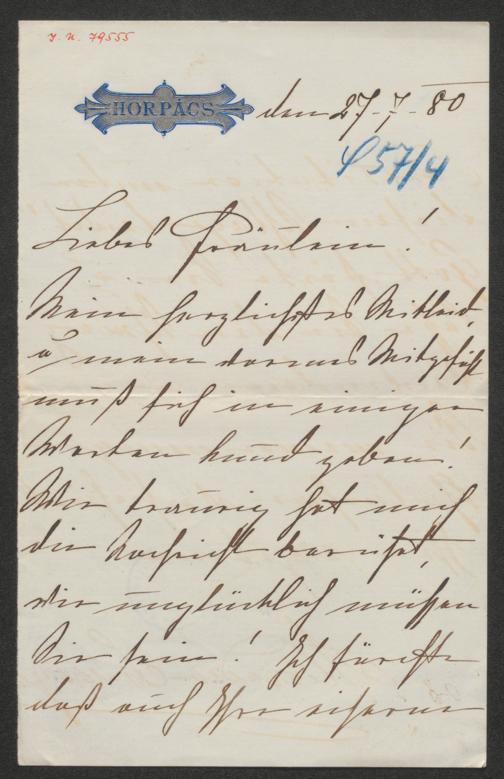 I. N. 79555
HORPÁCS
den 27.-7.-80
57/4
Liebes Fräulein!
Mein herzlichstes Mitleid,
u mein warmes Mitgefühl
muß sich in einigen
Worten kund geben!
Wie traurig hat mich
die Nachricht berührt,
wie unglücklich müssen
Sie sein! Ich fürchte
daß auch Ihre eiserne